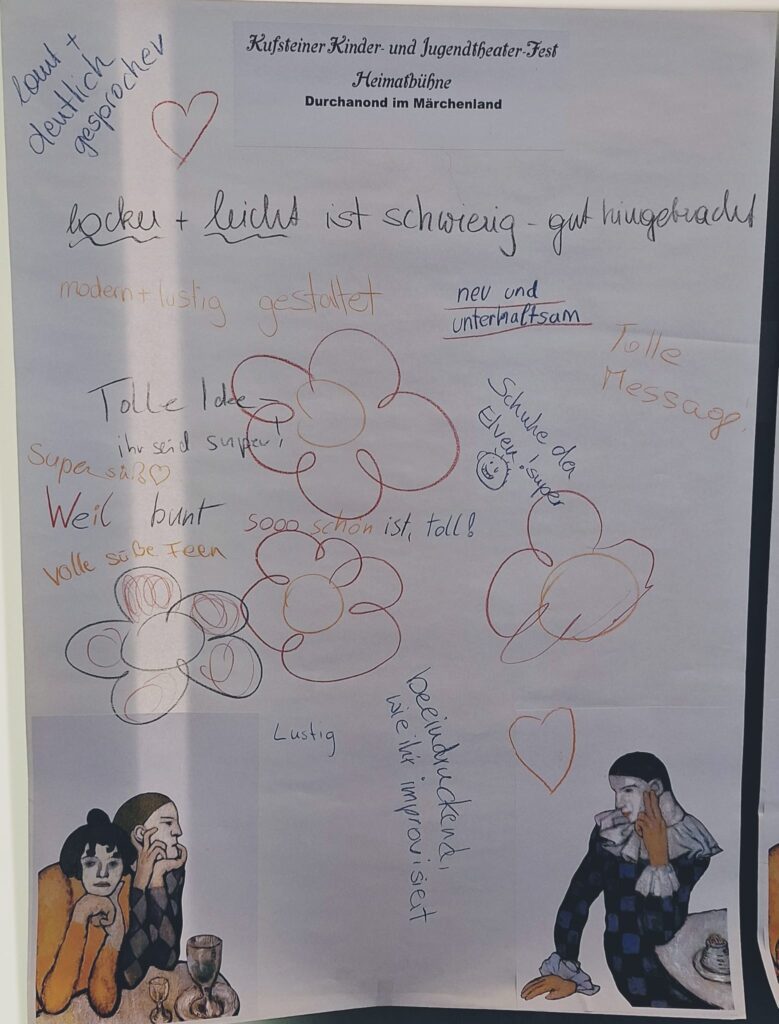 Kufsteiner Kinder- und Jugendtheater-Fest
Heimatbühne
Durchanond im Märchenland
laut +
deutlich
gesprochen
locker + leicht ist schwierig - gut hingebracht
modern + lustig gestaltet
neu und
unterhaltsam
Tolle
Message!
Tolle Idee -
ihr seid super!
Schuhe der
Elven! super
Super süß♡
Weil bunt sooo schön ist, toll!
Volle süße Feen
Lustig
beeindruckend,
wie ihr improvisiert